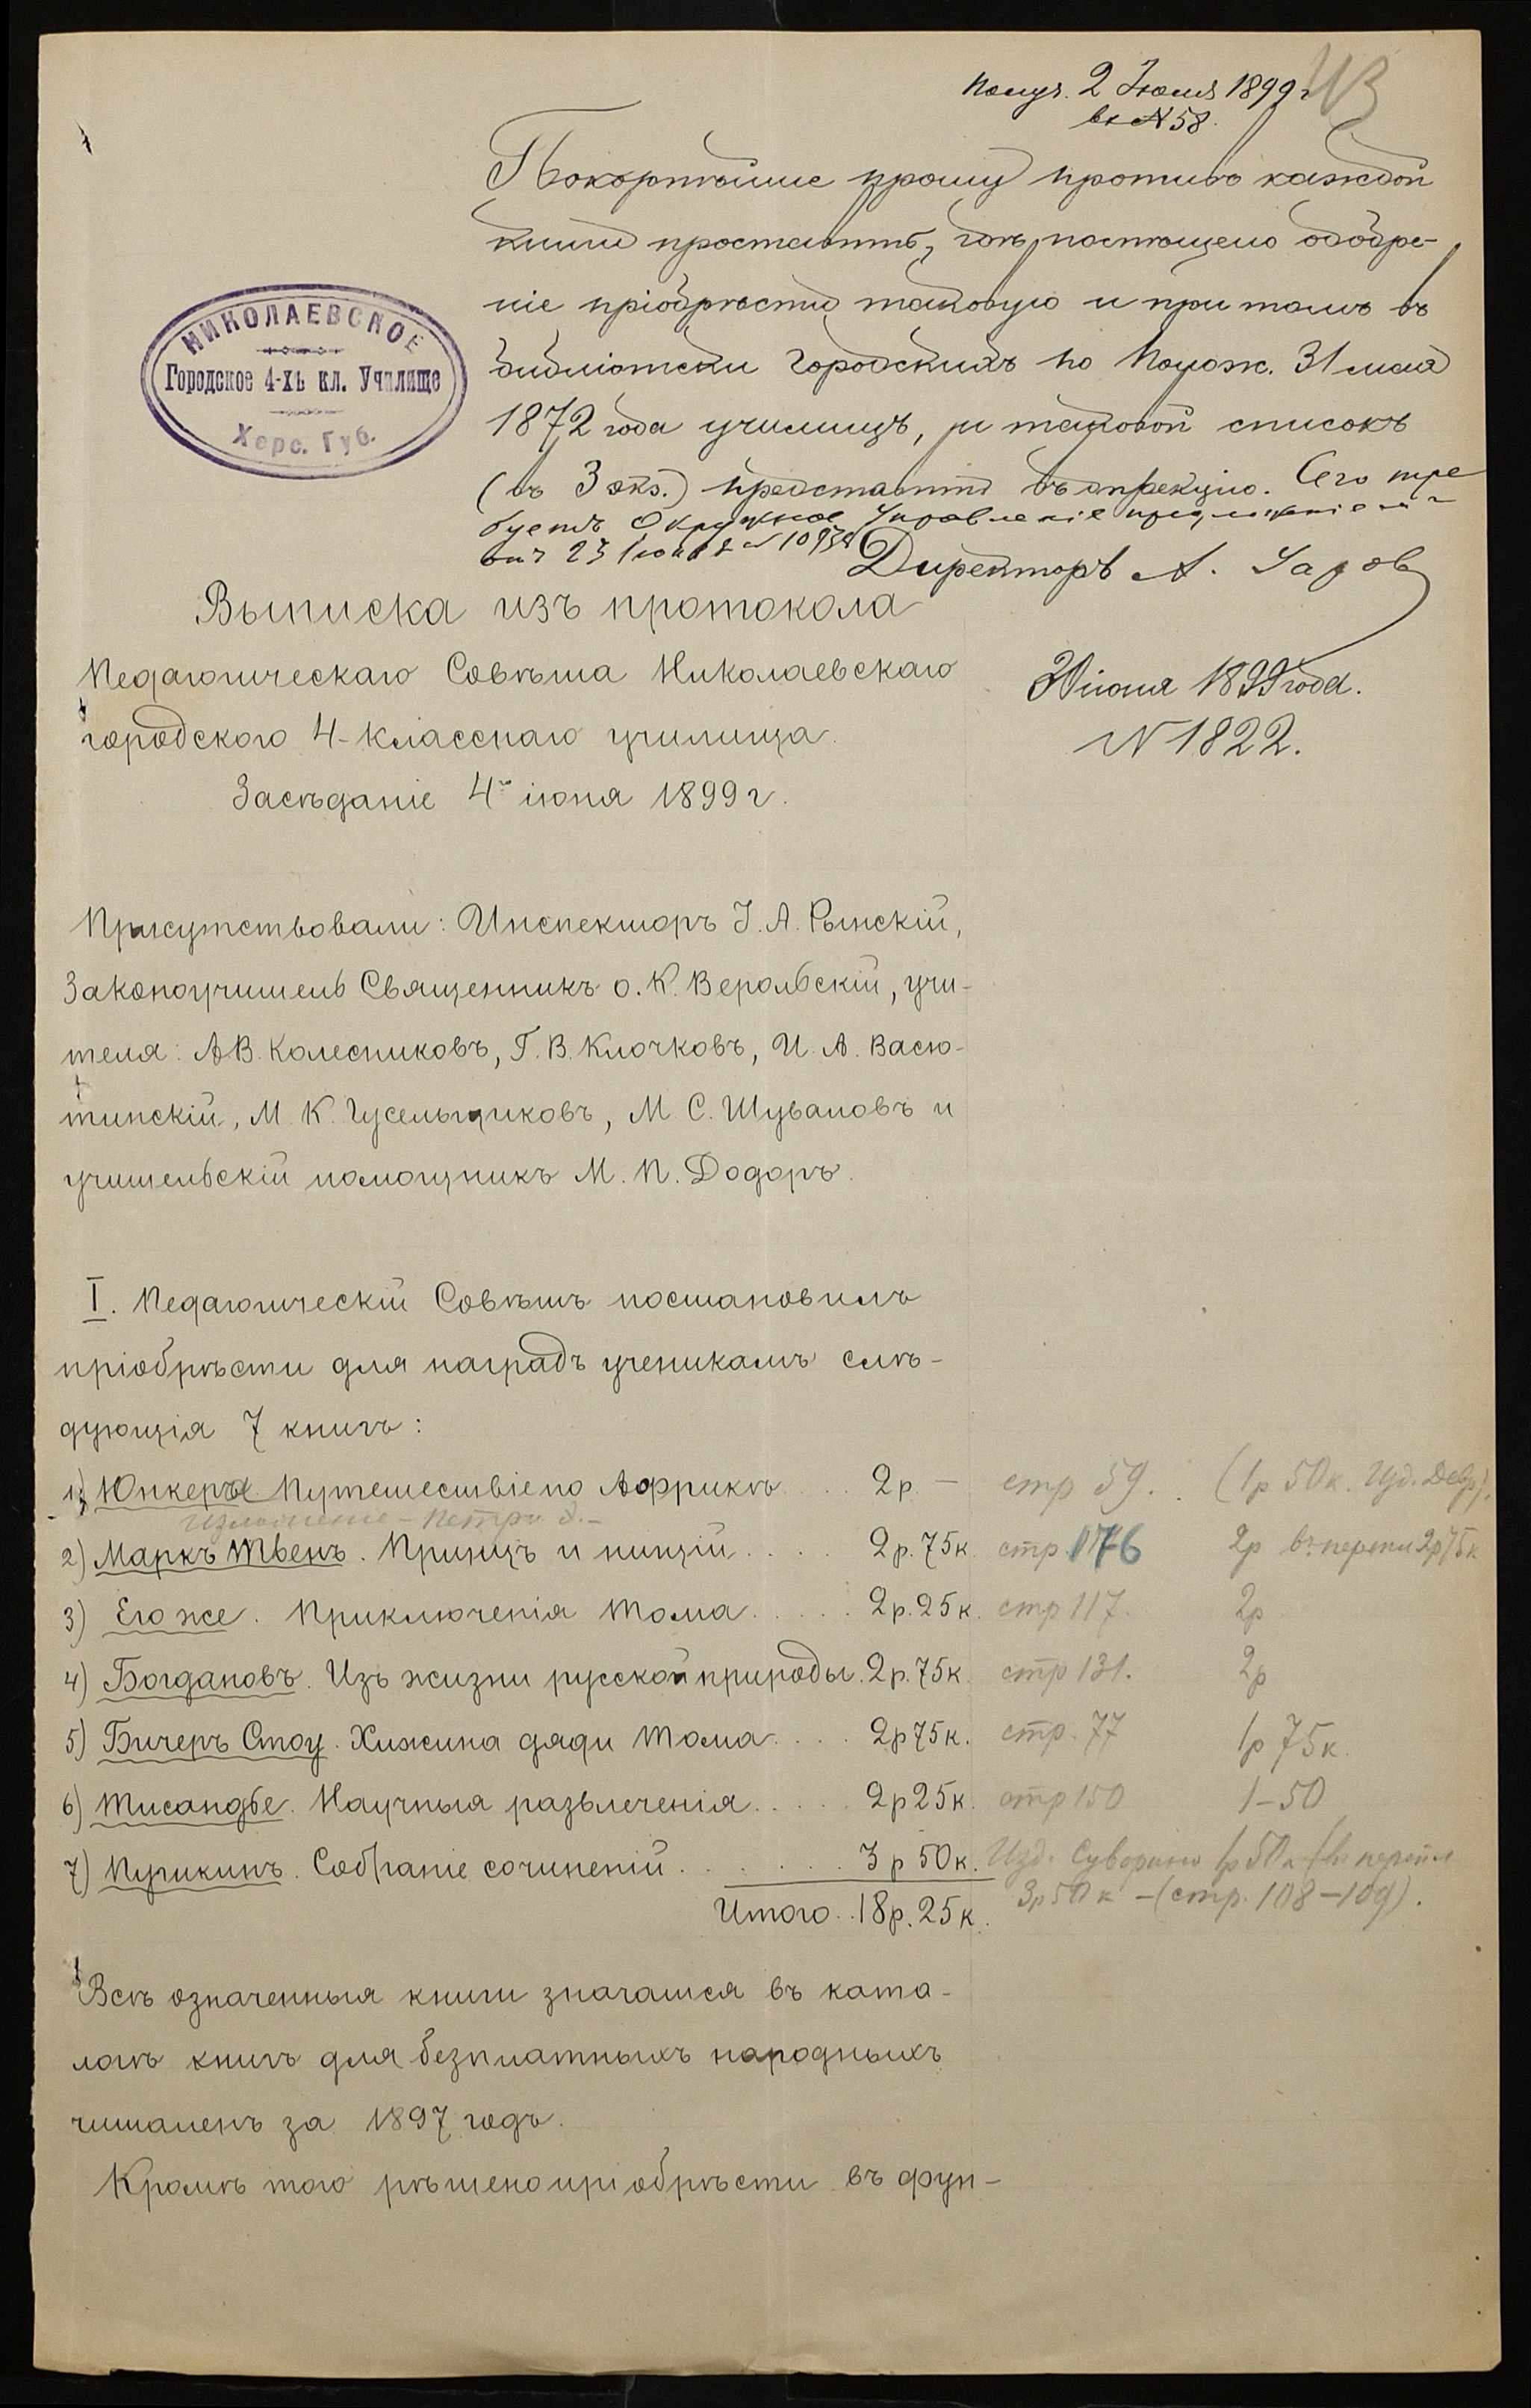 Получ. 2 Июля 1899 г
вх № 58.
Покорнѣйше прошу противъ каждой
книги проставить, гдѣ помѣщено одобре-
ніе пріобрѣсти таковую и при томъ въ
библіотеки городскихъ по Полож. 31 мая
1872 года училищъ, и таковой списокъ
(въ 3 экз.) представить въ дирекцію. Сего тре
буетъ Окружное Управленіе предложеніемъ
отъ 23 Іюня №
Директоръ А.
НИКОЛАЕВСКОЕ
Городское 4-хъ кл. Училище
Херс. Губ.
30 іюня 1899 года.
№ 1822.
Выписка изъ протокола
Педагогическаго Совѣта Николаевскаго
городского 4-класснаго училища.
Засѣданіе 4го іюня 1899 г.
Присутствовали: Инспекторъ І. А. Рынскій,
Законоучитель Священникъ о. К. Верольскій, учи-
теля: А.В. Колесниковъ, Г. В. Клочковъ, И. А. Васю-
тинскій, М. К. Гусельщиковъ, М. С. Шуваловъ и
учительскій помощникъ М. П. Додоръ.
I. Педагогическій Совѣтъ постановилъ
пріобрѣсти для наградъ ученикамъ слѣ-
дующія 7 книгъ:
1) Юнкера Путешествіе по Афррикѣ . . . 2 р. — стр 59. . (1 р 50 к. Изд. Девр).
изложение - Петри Э. -
2) Маркъ Твенъ. Принцъ и нищій . . . 2 р. 75 к стр. 176 2 р въ переп 2 р 75 к
3) Его же. Приключенія Тома . . . . . 2 р. 25 к. стр 117. 2 р
4) Богдановъ. Изъ жизни русской природы. 2 р. 75 к. стр 131. 2 р
5) Бичеръ Стоу. Хижина дяди Тома . . . . 2 р 75 к. стр. 77 1 р 75 к.
6) Тисандье. Научныя развлеченія . . . . . 2 р 25 к. стр 150 1-50
7) Пушкинъ. Собраніе сочиненій . . . . . . . 3 р 50 к. Изд. Суворина 1 р 50 к (въ перепл
3 р 50 к - (стр. 108-109).
Итого . . 18 р. 25 к.
Всѣ означенныя книги значатся въ ката-
логѣ книгъ для безплатныхъ народныхъ
читаленъ за 1897 годъ.
Кромѣ того рѣшено пріобрѣсти въ фун-